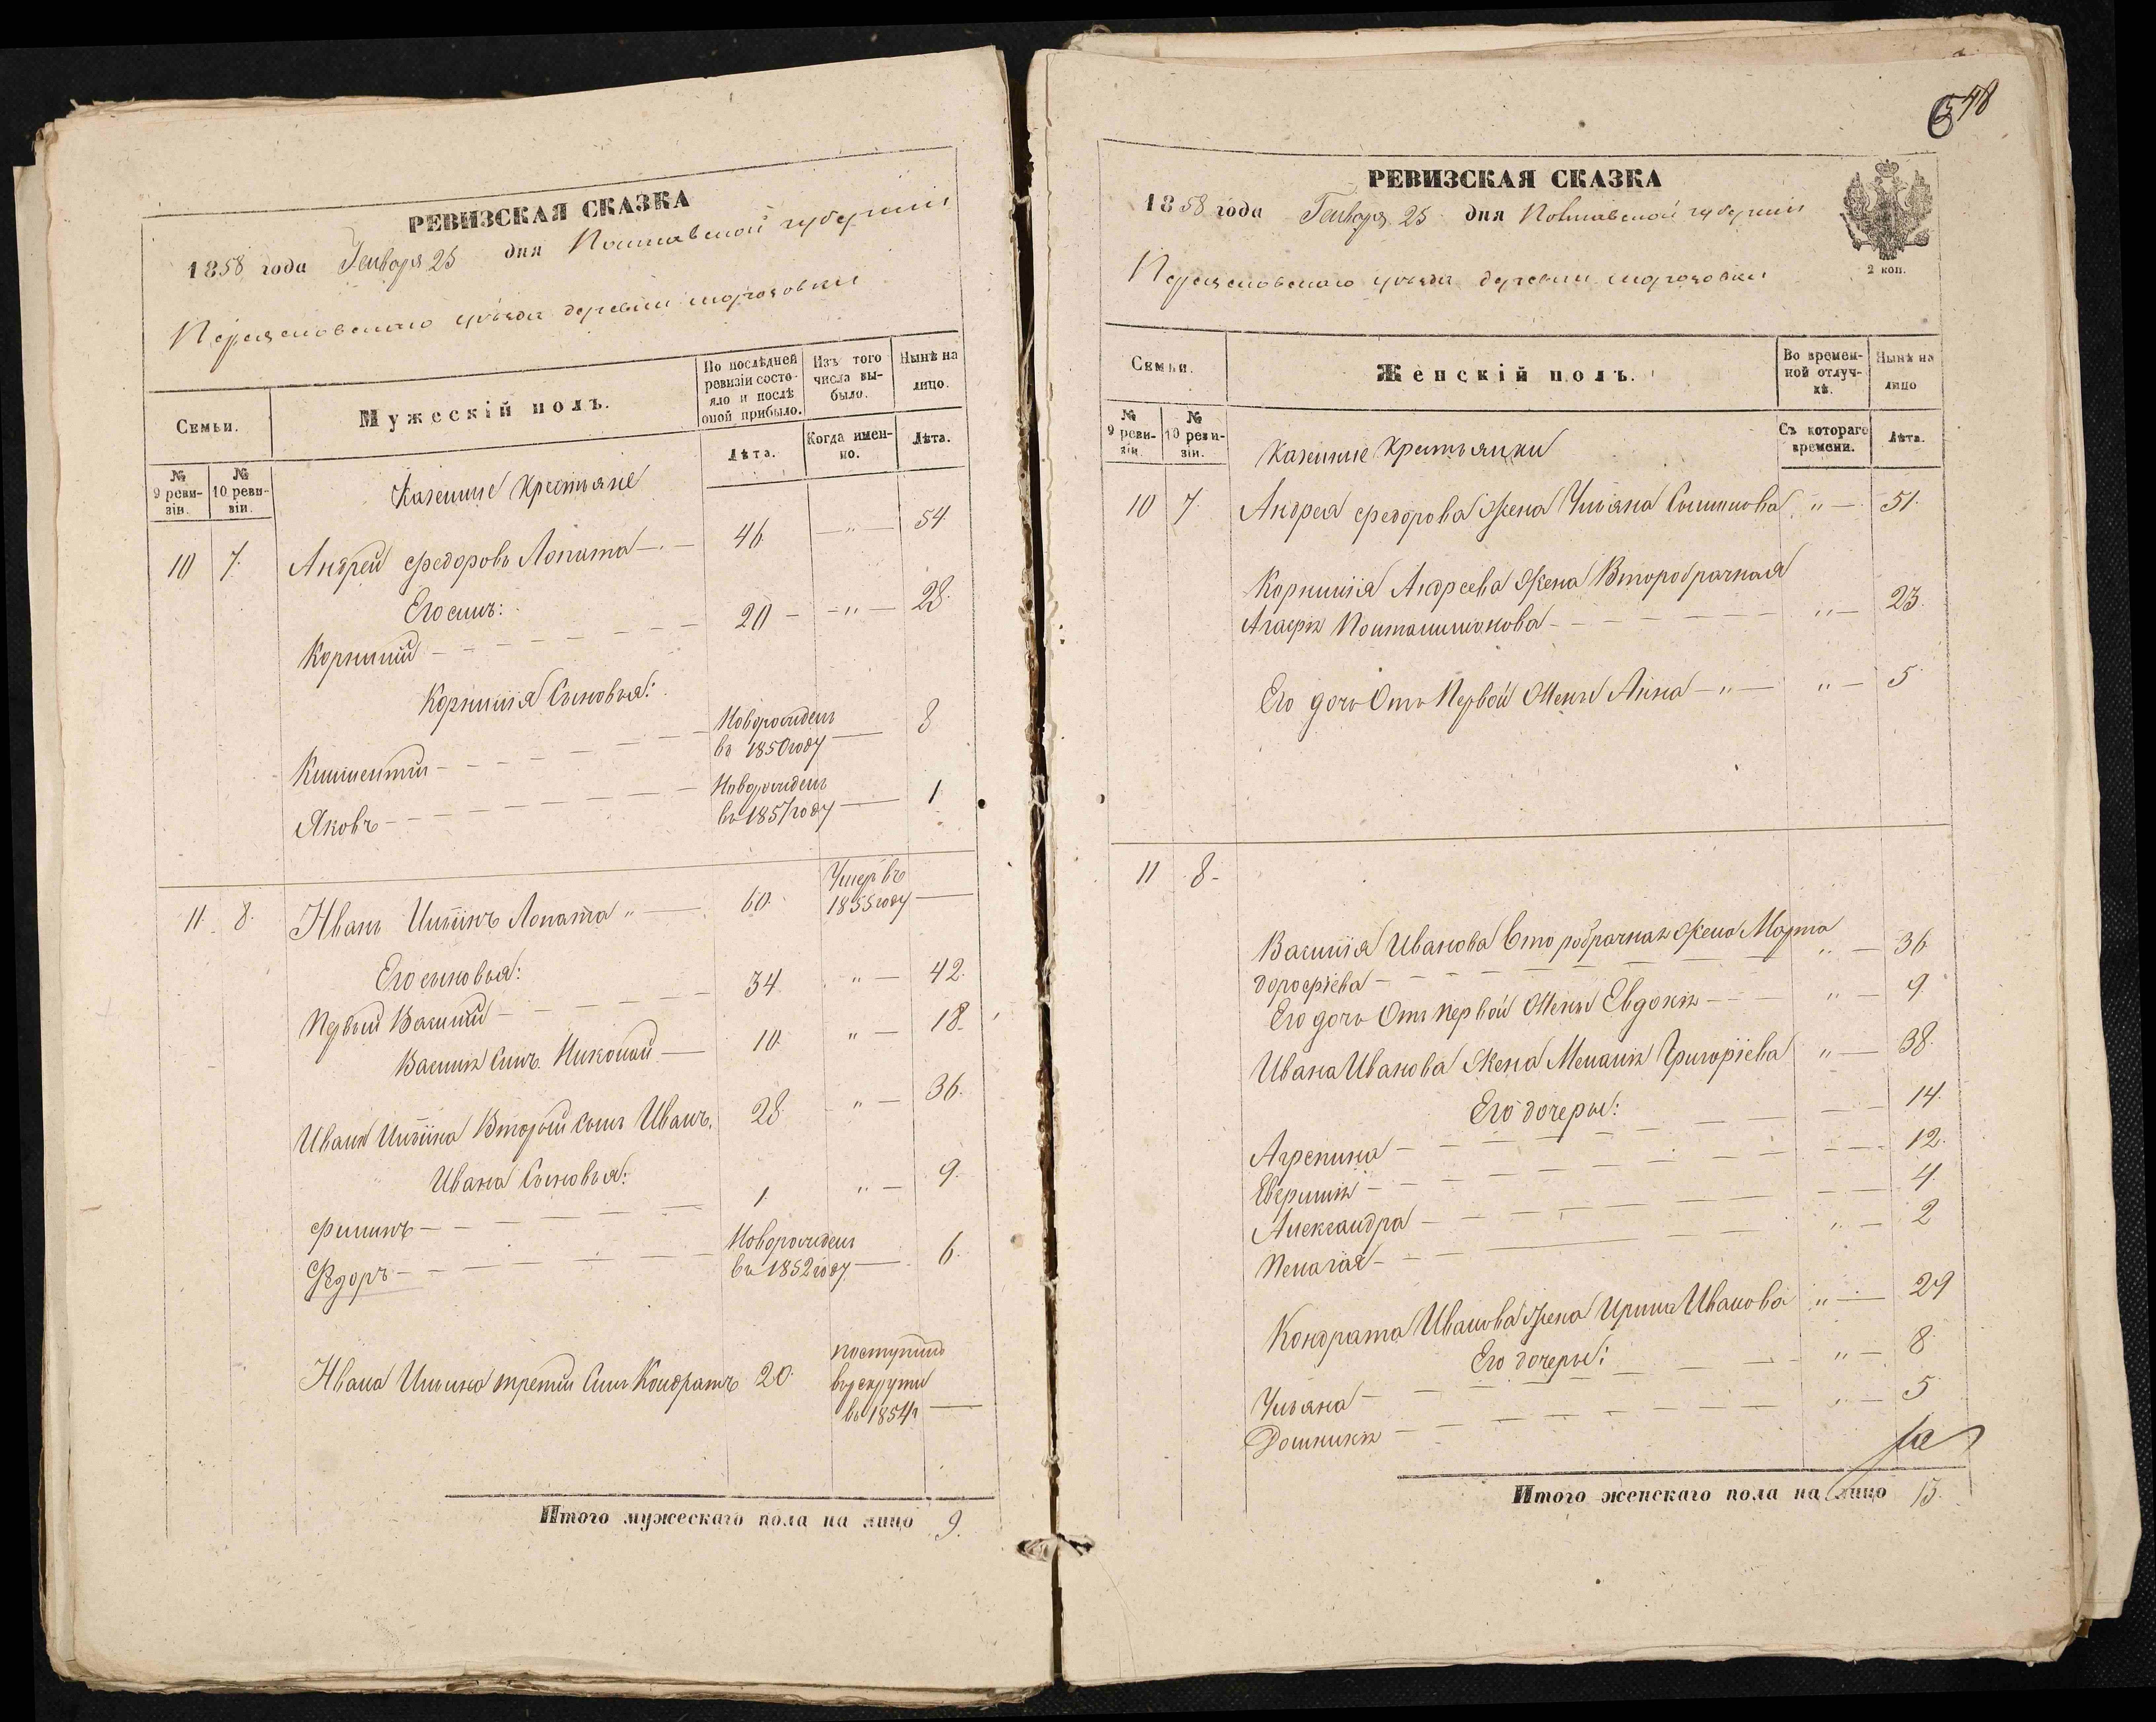 РЕВИЗСКАЯ СКАЗКА
1858 года Генваря 25 дня Полтавской губернии
Переяславскаго уѣзда деревни морозовки
Семьи.
Мужескій полъ.
По послѣдней ревизіи состояло и послѣ оной прибыло.
Изъ того числа выбыло.
Нынѣ на лицо.
№ 9 ревизіи.
№ 10 ревизіи.
Лѣта.
Когда именно.
Лѣта.
Казенные Крестьяне
10 7. Андрей Федоровъ Лопата 46 " 54
Его сынъ:
Корнилій 20 " 28.
Корнилія Сыновья:
Климентій Новорожденъ въ 1850 году 8
Яковъ Новорожденъ въ 1857 году 1
11. 8. Иванъ Ильинъ Лопата " 60. Умеръ въ 1855 году
Его сыновья:
Первый Василий 34 " 42.
Василія Сынъ Николай 10 " 18.
Ивана Ильина Вторый сынъ Иванъ. 28. " 36.
Ивана Сыновья:
Филипъ 1. " 9.
Федоръ Новорожденъ въ 1852 году 6.
Ивана Ильина третій Сынъ Кондратъ 20. поступилъ в рекруты в 1854 г
Итого мужескаго пола на лицо 9.
548
РЕВИЗСКАЯ СКАЗКА
1858 года Генваря 25 дня Полтавской губернии
2 коп.
Переяславскаго уѣзда деревни морозовки
Семьи.
Женскій полъ.
Во временной отлучкѣ.
Нынѣ на лицо
№ 9 ревизіи.
№ 10 ревизіи.
Съ котораго времени.
Лѣта.
Казенные Крестьянки
10 7. Андрея Федорова Жена Ульяна Симонова " 51.
Корнилія Андреева Жена Второбрачная
Агафія Понталимонова " 23.
Его дочь Отъ Первой Жены Анна " " 5
11 8.
Василія Иванова Второбрачная Жена Марта
дорофіева " 36
Его дочь Отъ первой Жены Евдокія " 9
Ивана Иванова Жена Меланія Григоріева " 38.
Его дочеры:
Агрепина 14.
12.
Александра 4.
Пелагія " 2
Кондрата Иванова Жена Ирина Иванова " 29
Его дочеры:
Ульяна " 8
Домникія " 5
Итого женскаго пола на лицо 13.